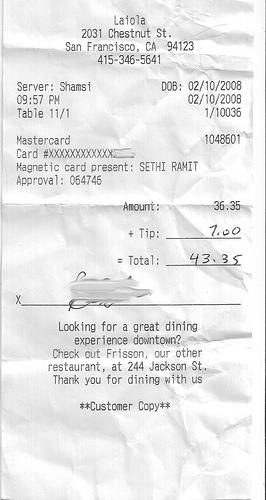 Laiola
2031 Chestnut St.
San Francisco, CA 94123
415-346-5641
Server: Shamsi DOB: 02/10/2008
09:57 PM 02/10/2008
Table 11/1 1/10036
Mastercard 1048601
Card #XXXXXXXXXXXX
Magnetic card present: SETHI RAMIT
Approval: 064746
Amount: 36.35
+ Tip: 7.00
= Total: 43.35
X
Looking for a great dining
experience downtown?
Check out Frisson, our other
restaurant, at 244 Jackson St.
Thank you for dining with us
**Customer Copy**